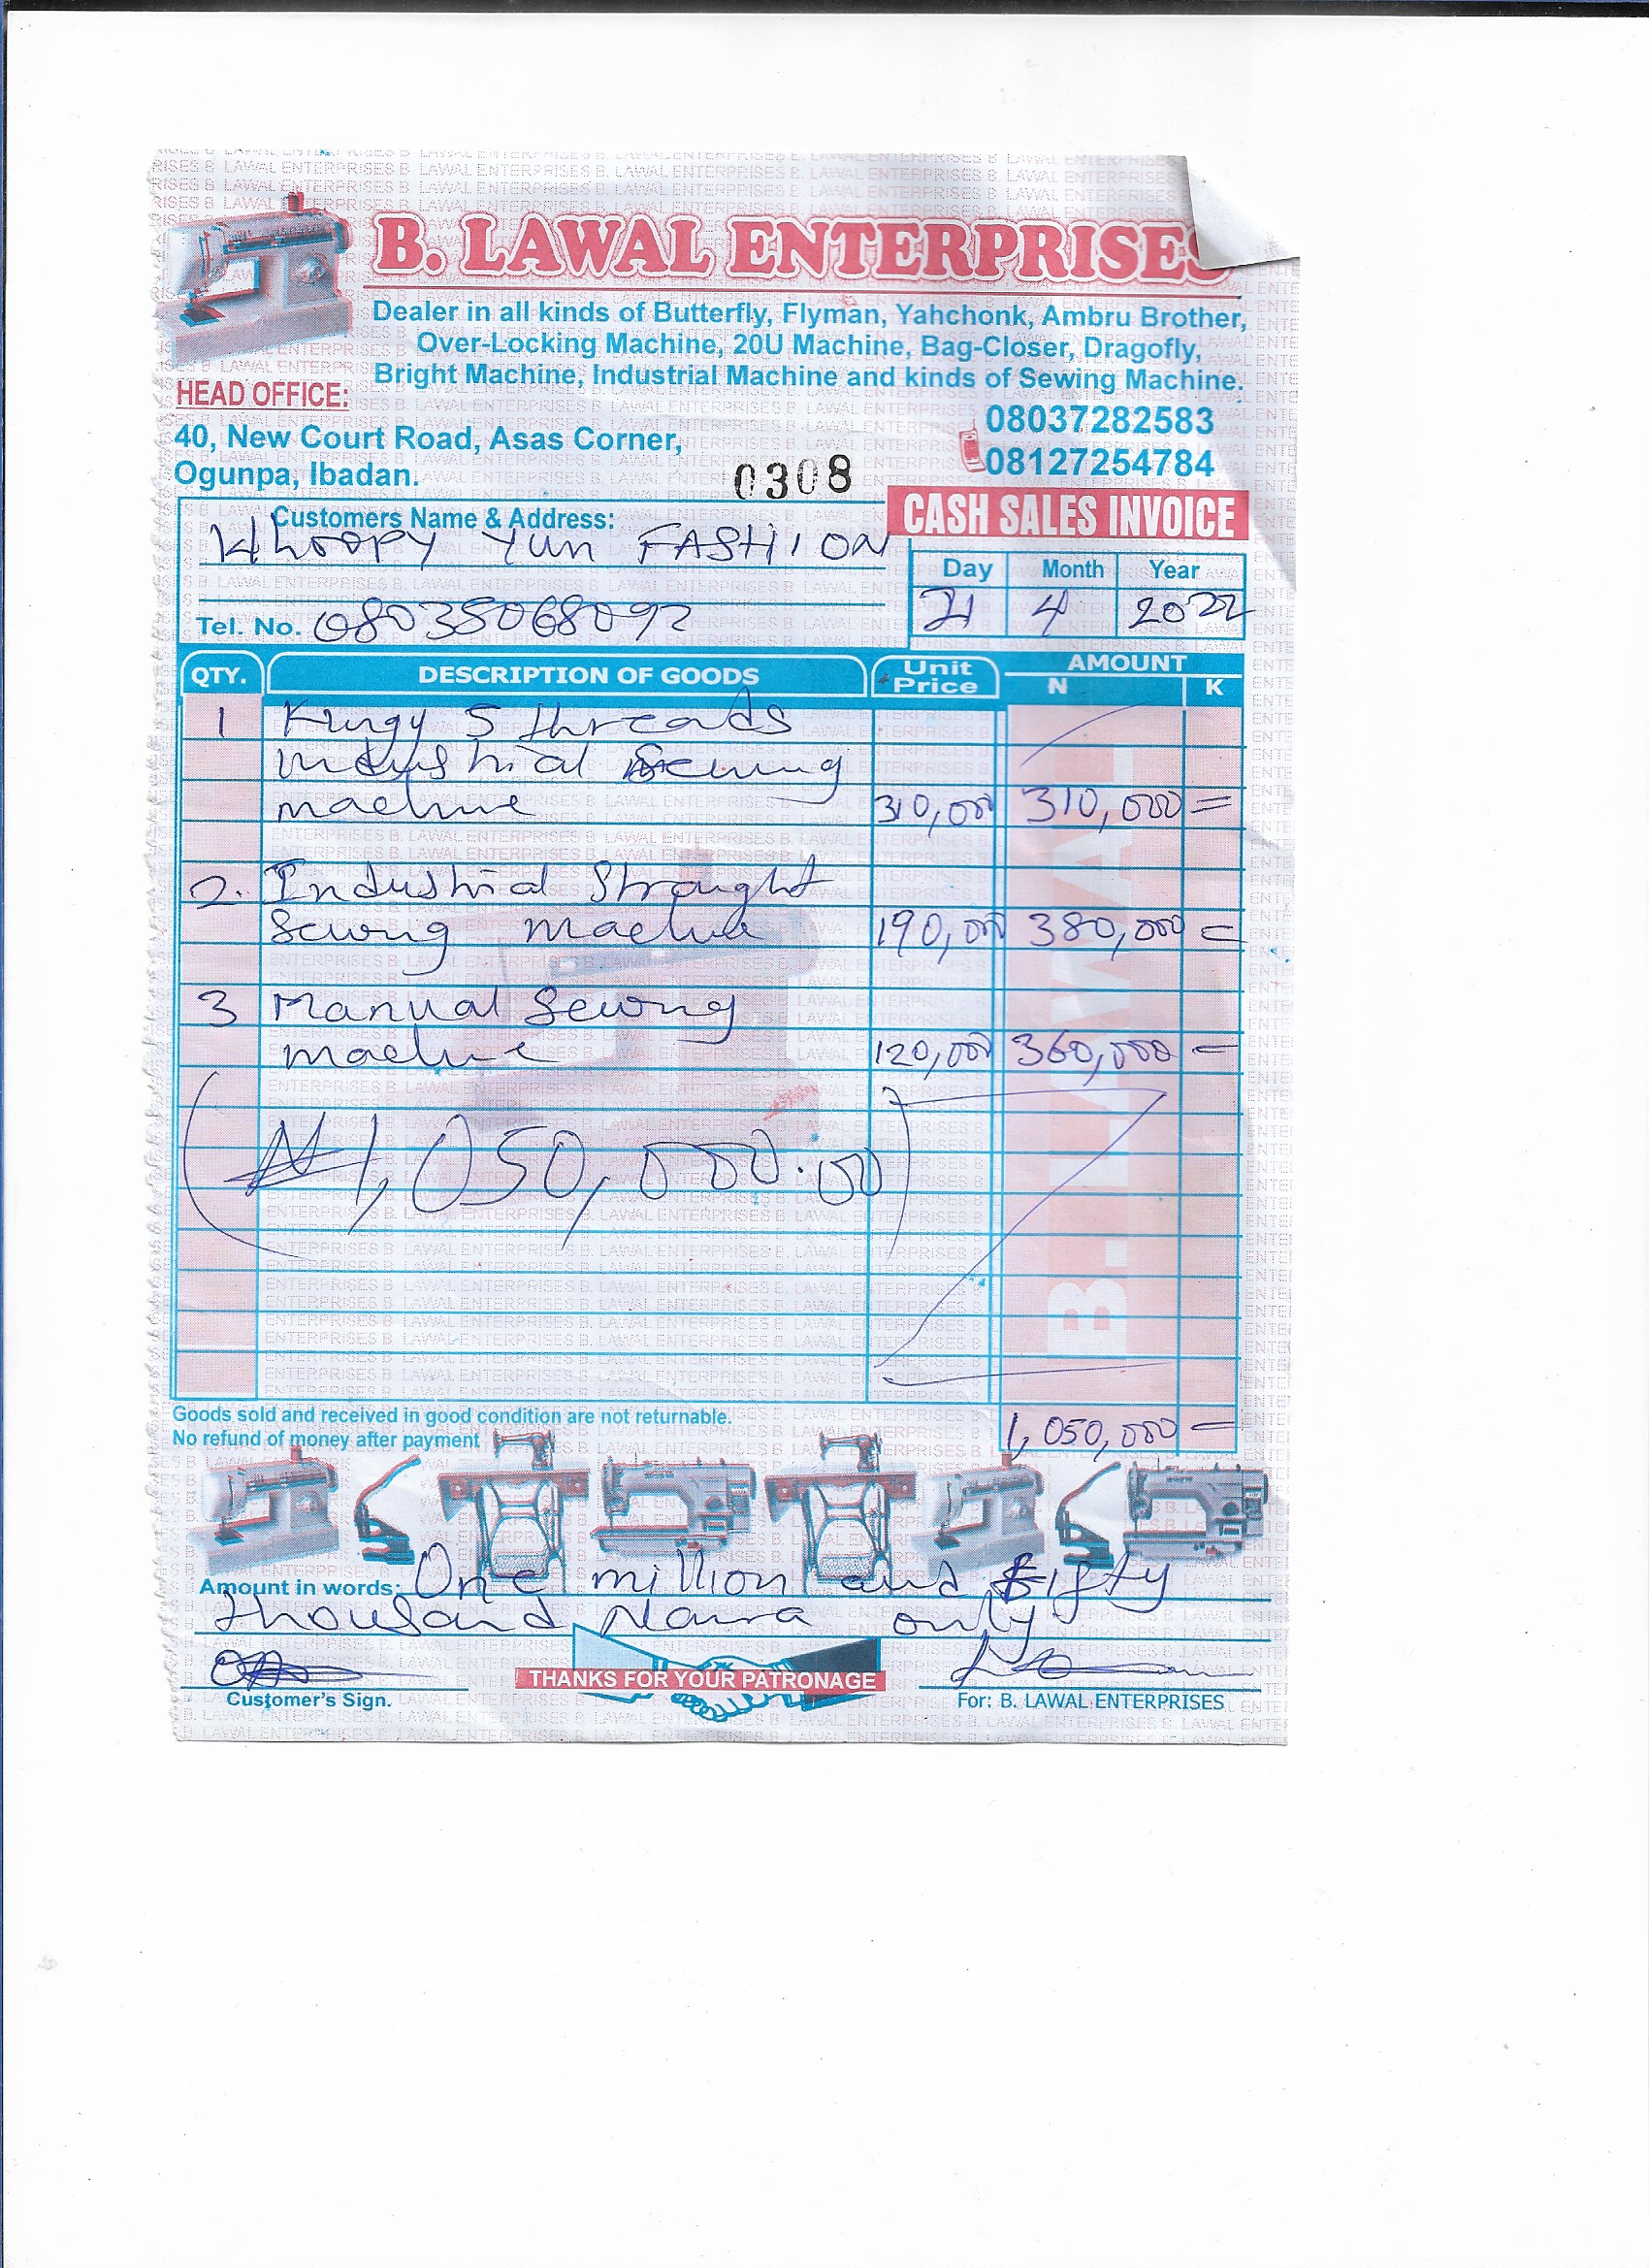 B. LAWAL ENTERPRISES
Dealer in all kinds of Butterfly, Flyman, Yahchonk, Ambru Brother,
Over-Locking Machine, 20U Machine, Bag-Closer, Dragofly,
Bright Machine, Industrial Machine and kinds of Sewing Machine.
HEAD OFFICE:
40, New Court Road, Asas Corner,
Ogunpa, Ibadan.
08037282583
08127254784
0308
CASH SALES INVOICE
Customers Name & Address:
Whoopy Yun FASHION
Tel. No. 08035068092
Day Month Year
21 4 2022
QTY. DESCRIPTION OF GOODS Unit Price AMOUNT
N K
1 5 threads
Industrial Sewing
machine 310,000 310,000 =
2. Industrial Straight
Sewing machine 190,000 380,000 =
3 Manual Sewing
machine 120,000 360,000 =
₦1,050,000.00
B. LAWAL
Goods sold and received in good condition are not returnable.
No refund of money after payment
1,050,000 =
Amount in words: One million and fifty
thousand Naira only
THANKS FOR YOUR PATRONAGE
Customer's Sign.
For: B. LAWAL ENTERPRISES